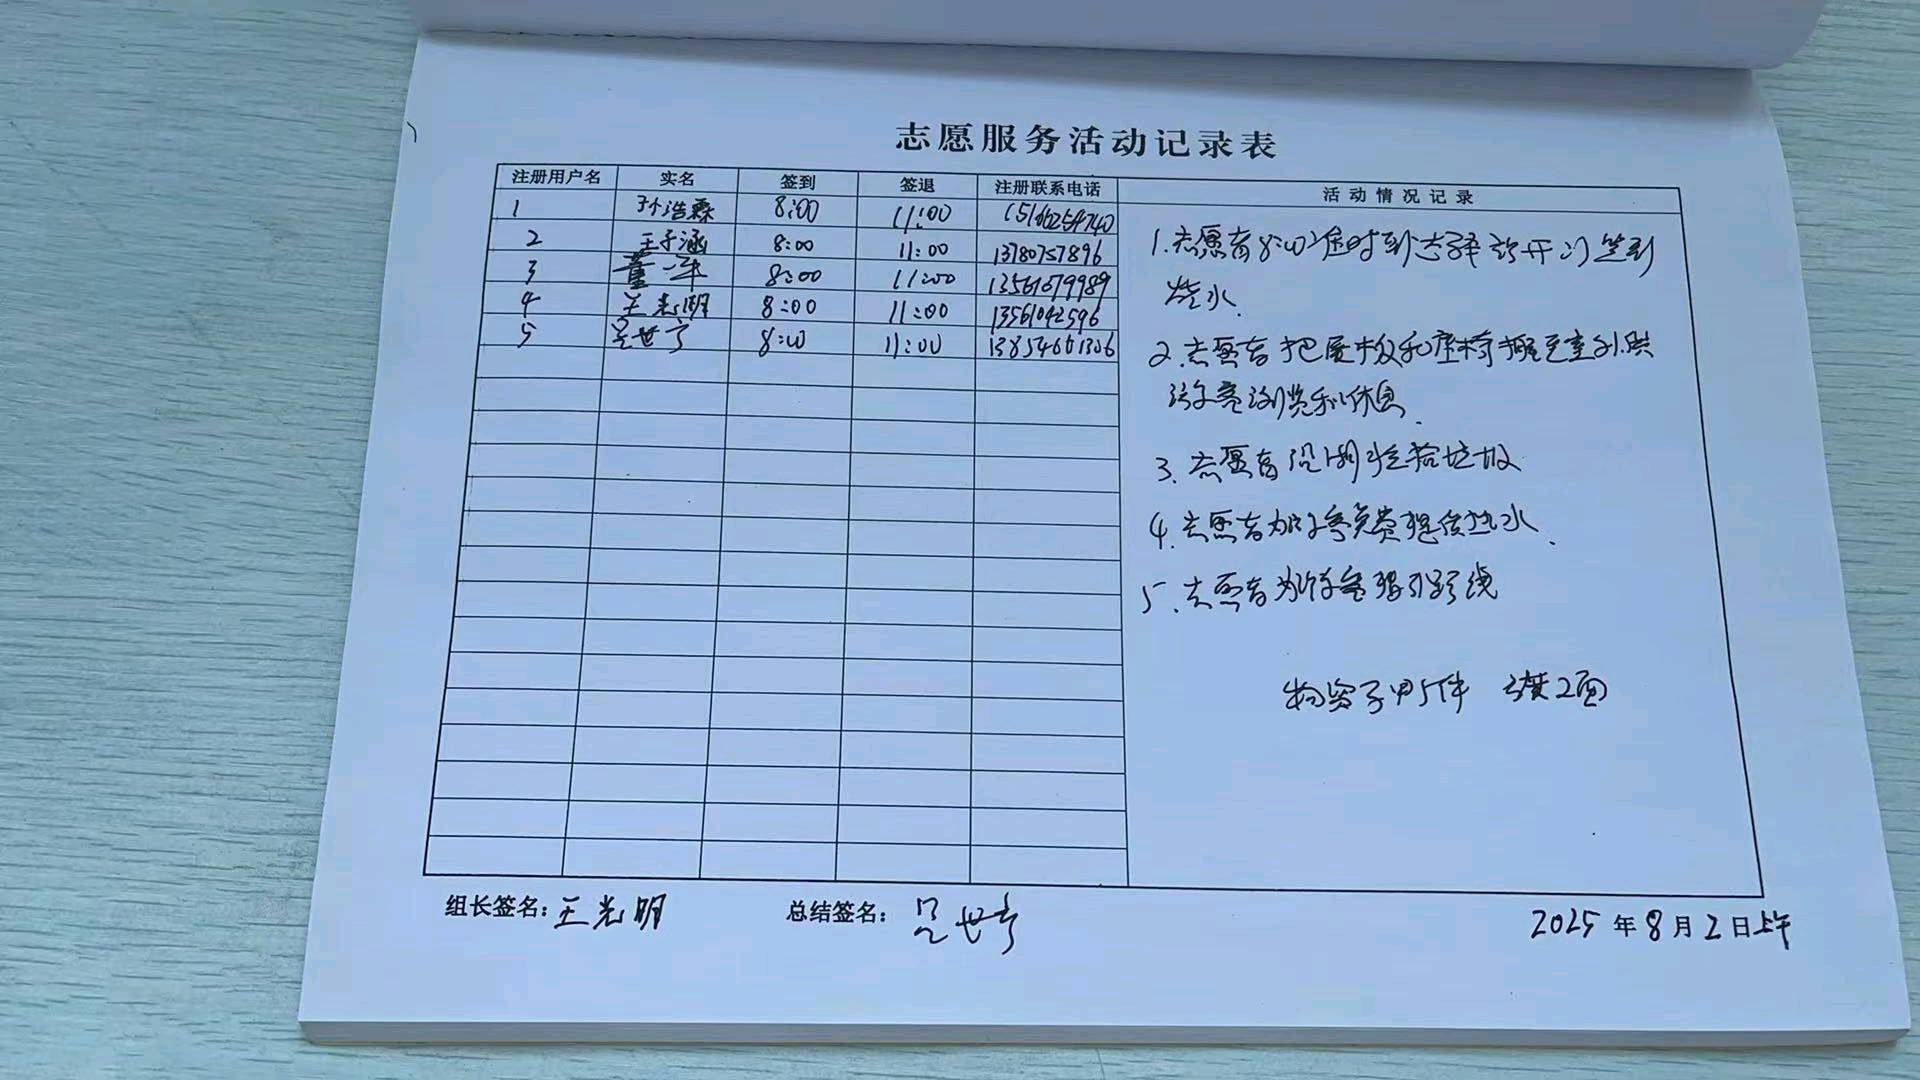 志愿服务活动记录表
注册用户名 实名 签到 签退 注册联系电话 活动情况记录
1 孙浩森 8:00 11:00 15166254740
2 王子涵 8:00 11:00 13780757896
3 董一军 8:00 11:00 13561679989
4 王光明 8:00 11:00 13561042596
5 吴世亨 8:00 11:00 13854661306
1.志愿者8:00准时到志愿驿站开门签到
烧水.
2.志愿者把展板和座椅搬至室外.供
游客浏览和休息.
3.志愿者沿湖捡拾垃圾
4.志愿者为游客免费提供热水.
5.志愿者为游客指引路线
物资马甲5件 旗2面
组长签名:王光明 总结签名:吴世亨 2025年8月2日上午